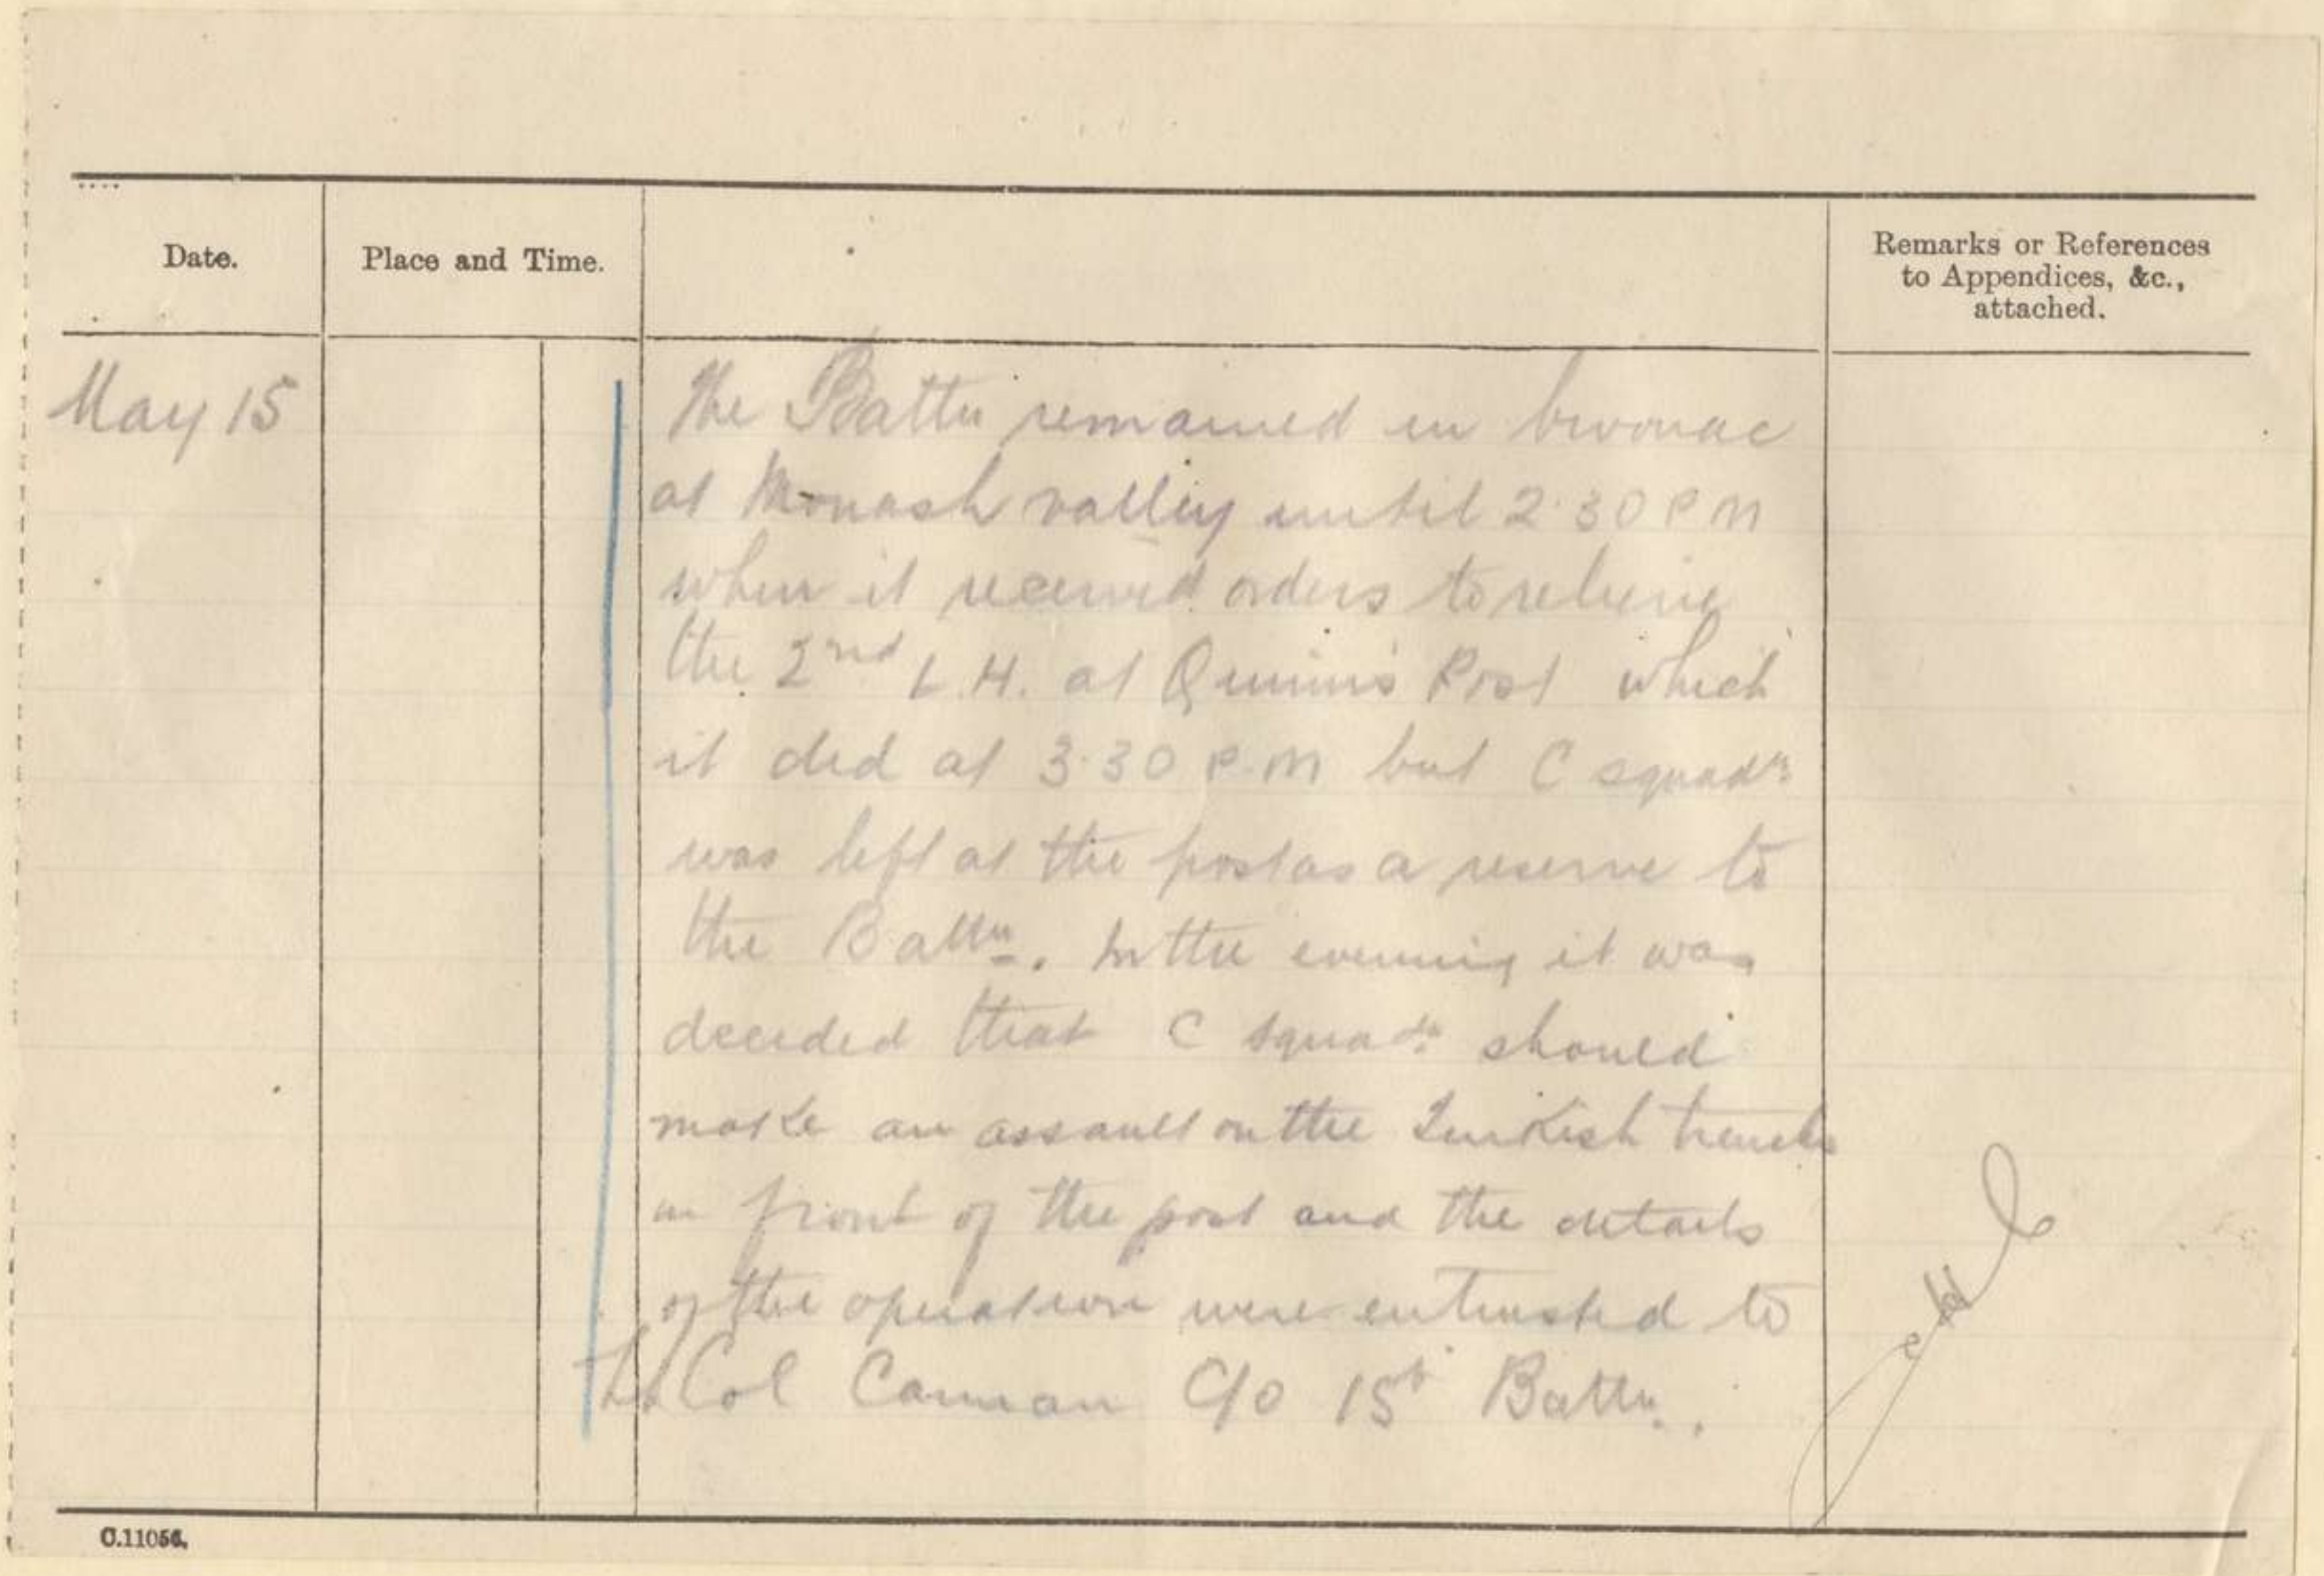 Date.
Place and Time.
Remarks or References
to Appendices, &c.,
attached.
May 15
The Battn remained in bivouac
at Monash valley until 2.30 PM
when it received orders to relieve
the 2nd L.H. at Quinn's Post which
it did at 3.30 P.M but C squadn
was left at the post as a reserve to
the Battn. In the evening it was
decided that C squadn should
make an assault on the Turkish trenches
in front of the post and the details
of the operation were entrusted to
Lt Col Cannan C/o 15th Battn.
C.11056.